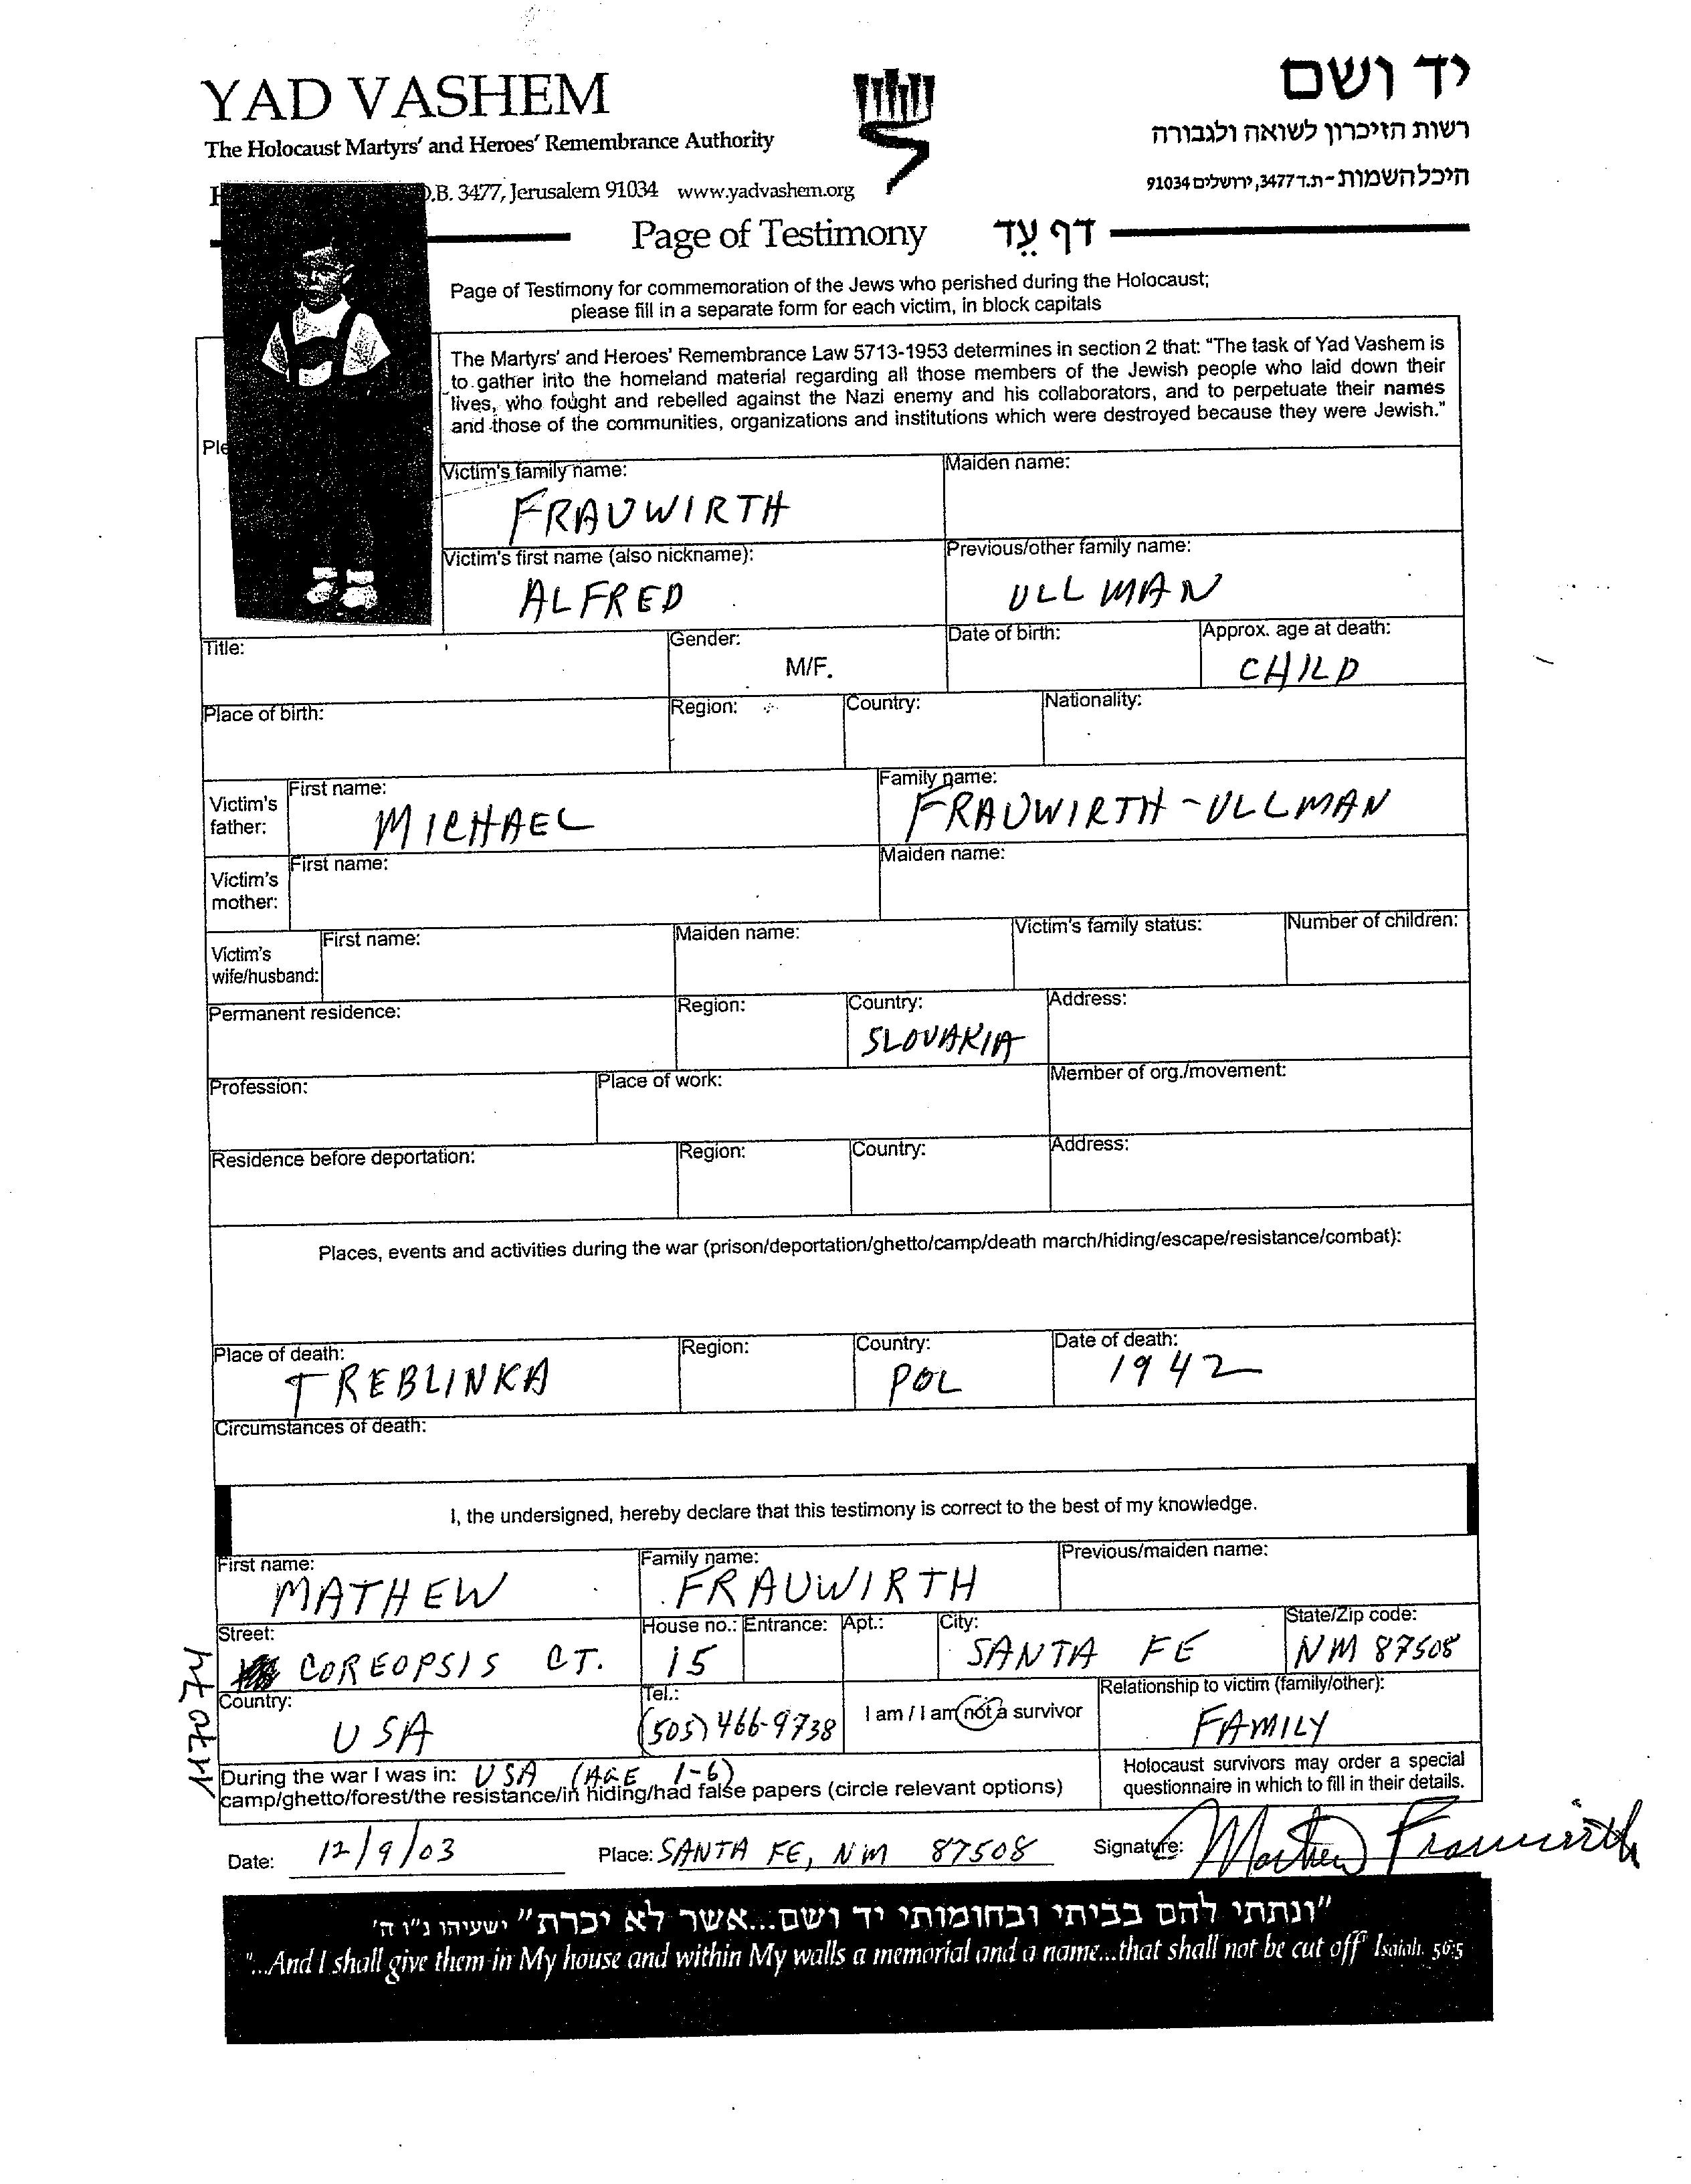 YAD VASHEM
יד ושם
The Holocaust Martyrs' and Heroes' Remembrance Authority
רשות הזיכרון לשואה ולגבורה
.B. 3477, Jerusalem 91034 www.yadvashem.org
היכל השמות - ת.ד 3477, ירושלים 91034
Page of Testimony דף עֵד
Page of Testimony for commemoration of the Jews who perished during the Holocaust;
please fill in a separate form for each victim, in block capitals
The Martyrs' and Heroes' Remembrance Law 5713-1953 determines in section 2 that: "The task of Yad Vashem is
to gather into the homeland material regarding all those members of the Jewish people who laid down their
lives, who fought and rebelled against the Nazi enemy and his collaborators, and to perpetuate their names
and those of the communities, organizations and institutions which were destroyed because they were Jewish."
Ple
Victim's family name: Maiden name:
FRAUWIRTH
Victim's first name (also nickname): Previous/other family name:
ALFRED ULLMAN
Title: Gender: Date of birth: Approx. age at death:
M/F. CHILD
Place of birth: Region: Country: Nationality:
Victim's father: First name: Family name:
MICHAEL FRAUWIRTH-ULLMAN
Victim's mother: First name: Maiden name:
Victim's wife/husband: First name: Maiden name: Victim's family status: Number of children:
Permanent residence: Region: Country: Address:
SLOVAKIA
Profession: Place of work: Member of org./movement:
Residence before deportation: Region: Country: Address:
Places, events and activities during the war (prison/deportation/ghetto/camp/death march/hiding/escape/resistance/combat):
Place of death: Region: Country: Date of death:
TREBLINKA POL 1942
Circumstances of death:
I, the undersigned, hereby declare that this testimony is correct to the best of my knowledge.
First name: Family name: Previous/maiden name:
MATHEW FRAUWIRTH
Street: House no.: Entrance: Apt.: City: State/Zip code:
COREOPSIS CT. 15 SANTA FE NM 87508
Country: Tel.: I am / I am not a survivor Relationship to victim (family/other):
USA (505) 466-9738 FAMILY
During the war I was in: USA (AGE 1-6)
camp/ghetto/forest/the resistance/in hiding/had false papers (circle relevant options)
Holocaust survivors may order a special
questionnaire in which to fill in their details.
Date: 12/9/03 Place: SANTA FE, NM 87508 Signature: Mathew Frauwirth
"ונתתי להם בביתי ובחומותי יד ושם...אשר לא יכרת" ישעיהו נ"ו ה'
"...And I shall give them in My house and within My walls a memorial and a name...that shall not be cut off" Isaiah. 56:5